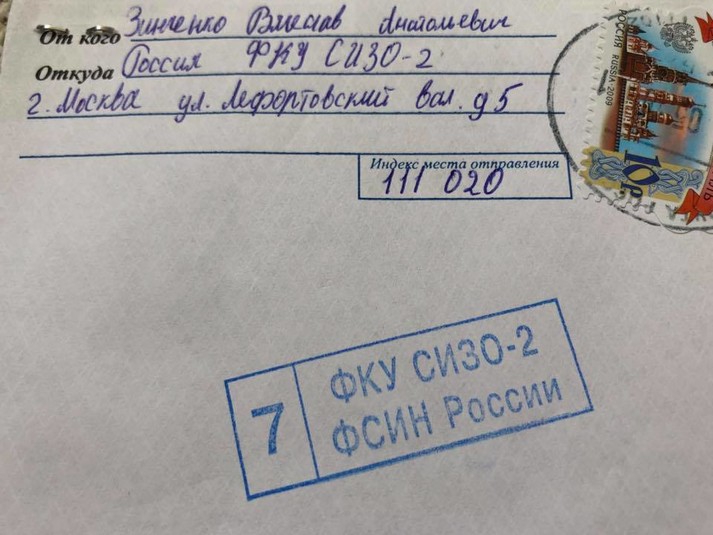 От кого Зинченко Вячеслав Анатольевич
Откуда Россия ФКУ СИЗО-2
г. Москва ул. Лефортовский Вал. д 5
Индекс места отправления
111 020
РОССИЯ RUSSIA · 2009
10р
7
ФКУ СИЗО-2
ФСИН России